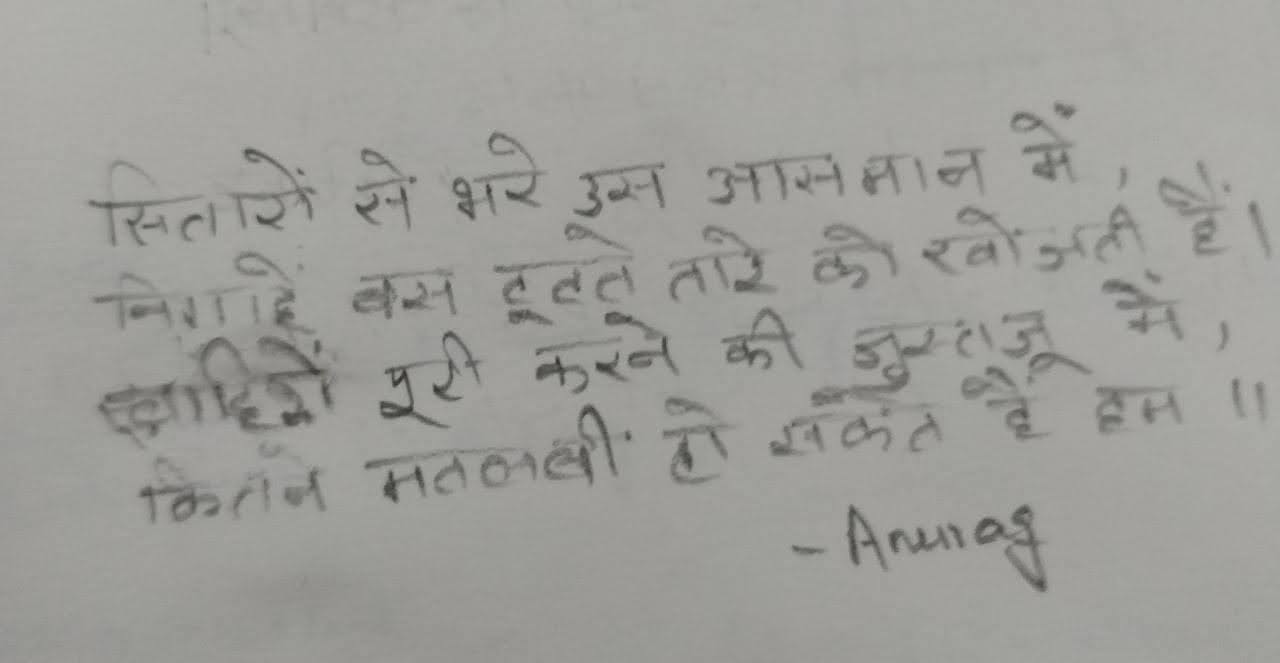 सितारों से भरे उस आसमान में,
निगाहें बस टूटते तारे को खोजती हैं।
ख्वाहिशें पूरी करने की जुस्तजू में,
कितने मतलबी हो सकते हैं हम ॥
- Anurag